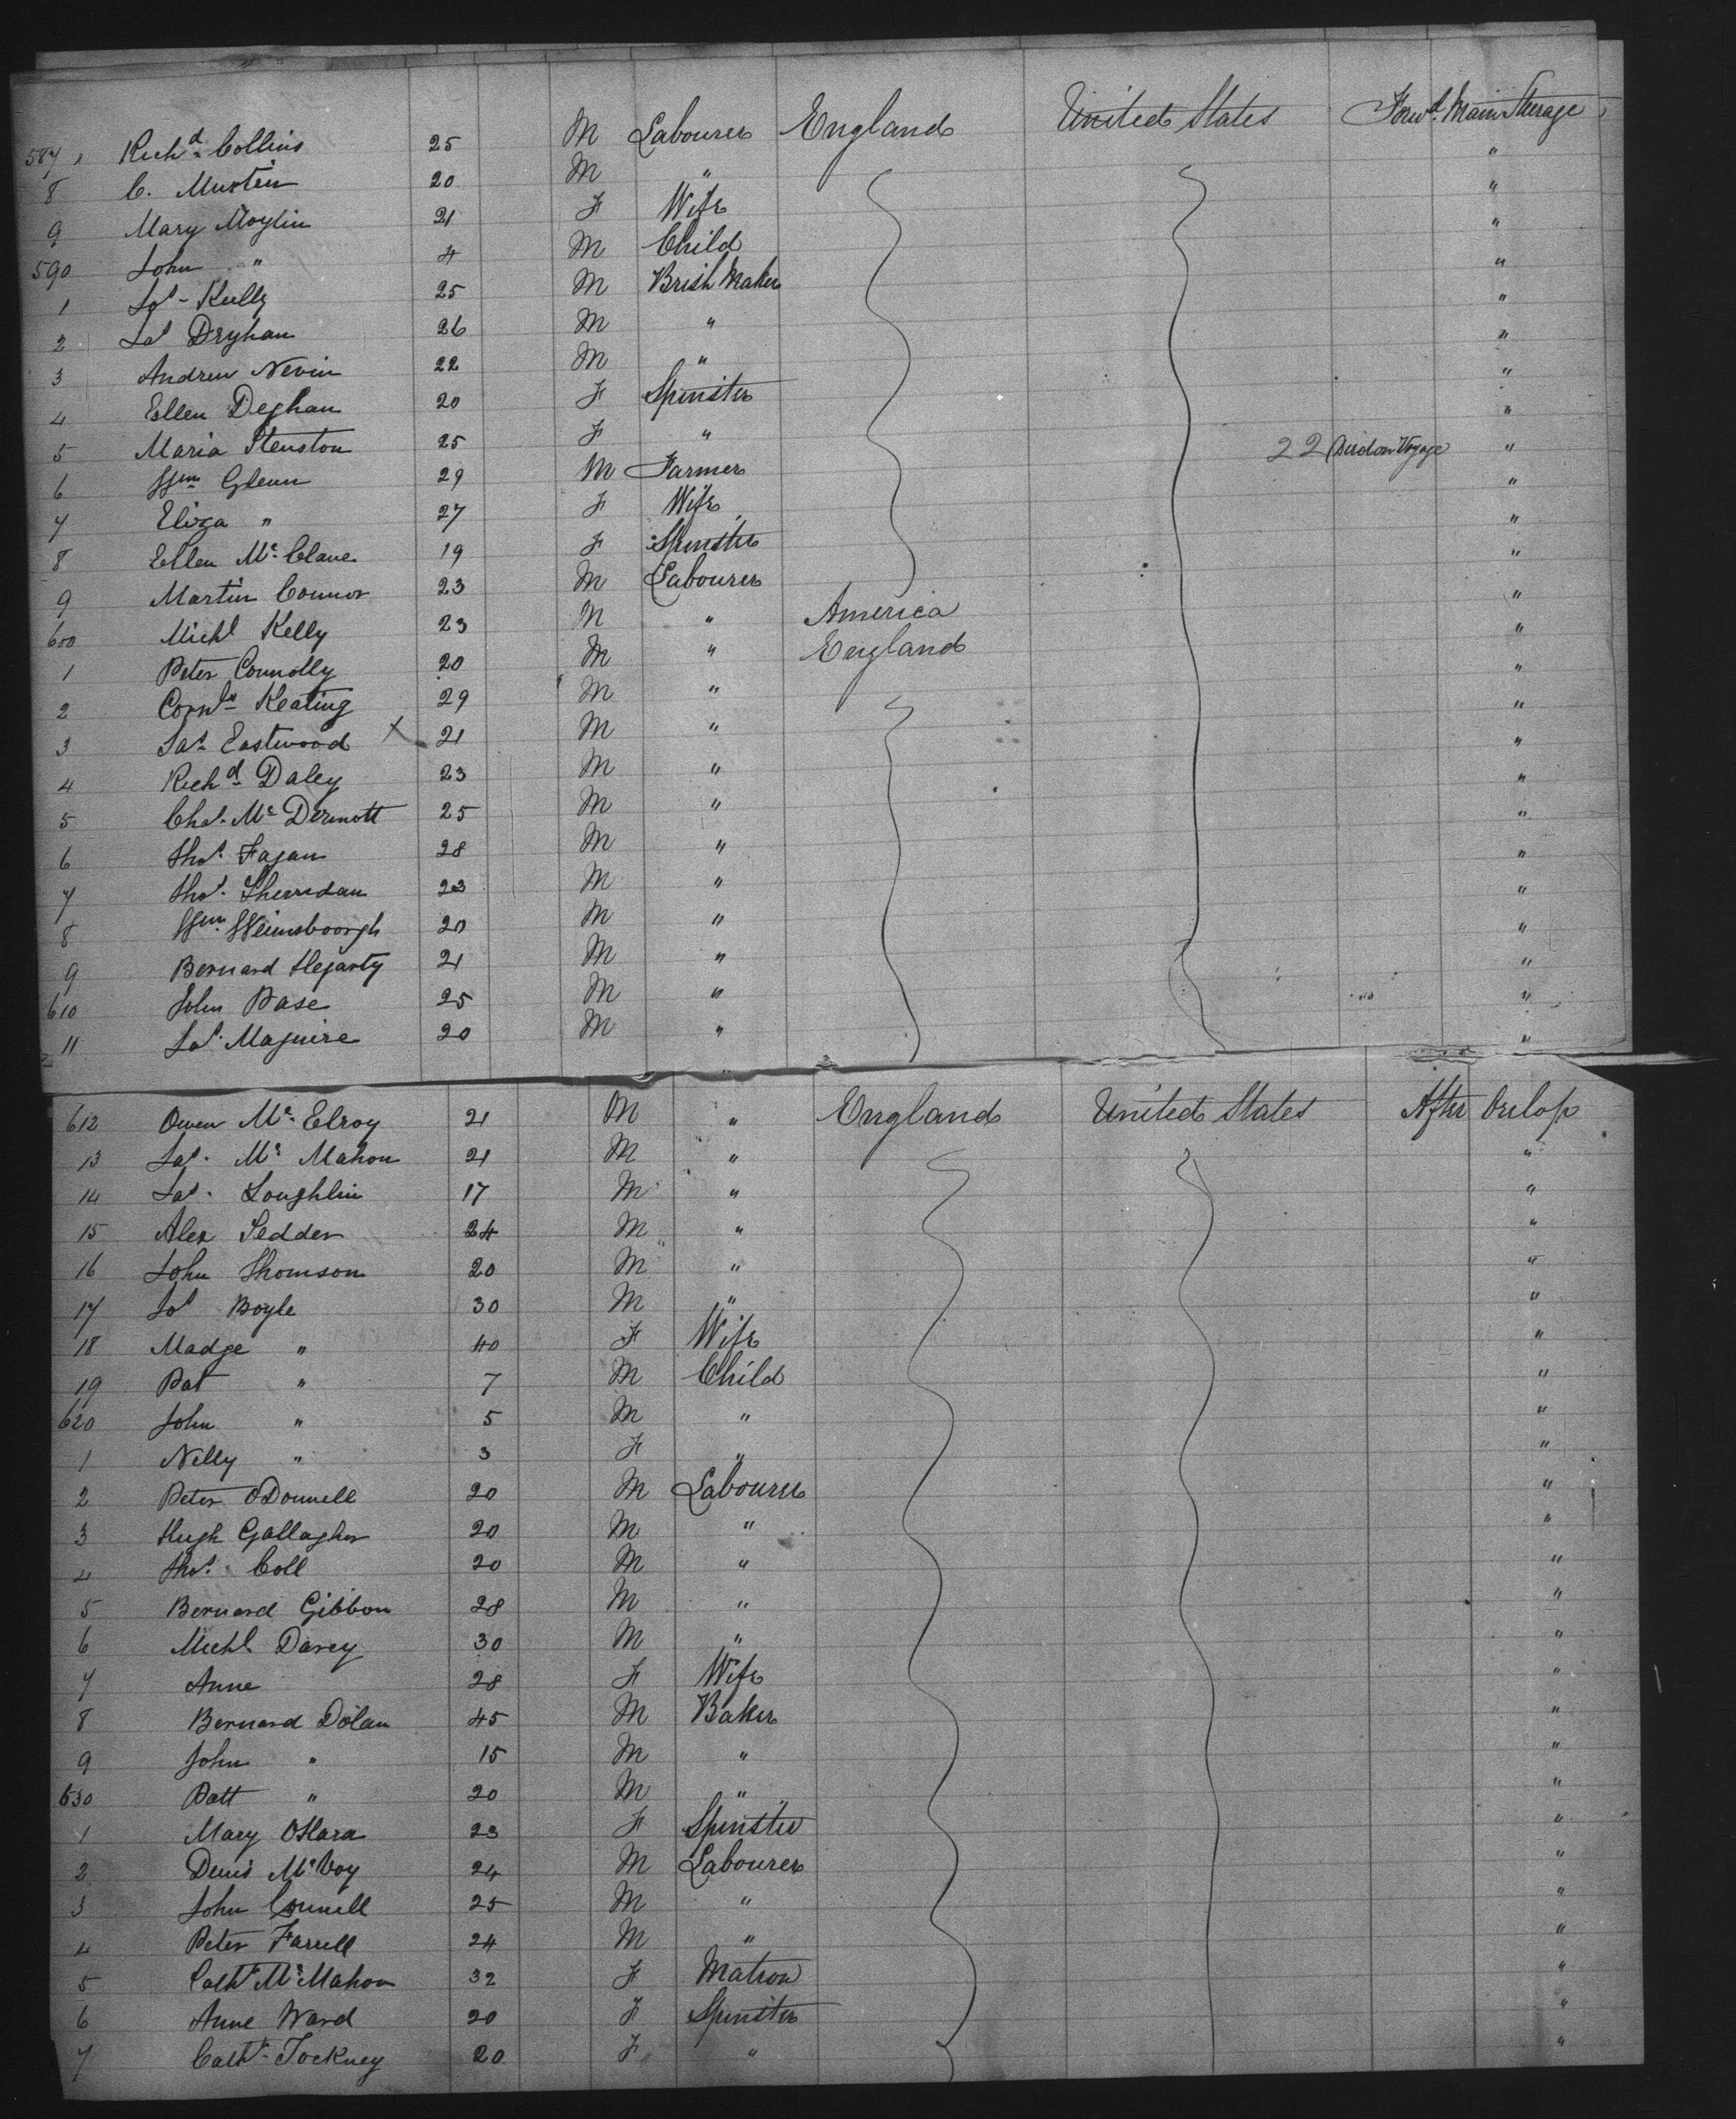 587 Richd Collins 25 M Labourer England United States Forwd. Main Steerage
8 C. Mustin 20 M " "
9 Mary Moylin 21 F Wife "
590 John " 4 M Child "
1 Jos Kelly 25 M Brish Maker "
2 Jas Dryhan 26 M " "
3 Andrew Nevin 22 M " "
4 Ellen Deghan 20 F Spinster "
5 Maria Stenston 25 F " 22 Died on Voyage "
6 Wm Glenn 29 M Farmer "
7 Eliza " 27 F Wife "
8 Ellen Mc Clane 19 F Spinster "
9 Martin Connor 23 M Labourer "
600 Michl Kelly 23 M " America "
1 Peter Connolly 20 M " England "
2 Cornls Keating 29 M " "
3 Jas Eastwood X 21 M " "
4 Richd Daley 23 M " "
5 Chas. Mc Dermott 25 M " "
6 Thos. Fagan 28 M " "
7 Thos. Sherridan 23 M " "
8 Wm 20 M " "
9 Bernard Hegarty 21 M " "
610 John Pase 25 M " "
11 Jas. Maguire 20 M " "
612 Owen Mc Elroy 21 M " England United States After Orlop
13 Jas. Mc Mahon 21 M " "
14 Jas. Loughlin 17 M " "
15 Alex Sedder 24 M " "
16 John Thomson 20 M " "
17 Jos Boyle 30 M " "
18 Madge " 40 F Wife "
19 Pat " 7 M Child "
620 John " 5 M " "
1 Nelly " 3 F " "
2 Peter ODonnell 20 M Labourer "
3 Hugh Gallagher 20 M " "
4 Thos. Coll 20 M " "
5 Bernard Gibbon 28 M " "
6 Michl Darcy 30 M " "
7 Anne 28 F Wife "
8 Bernard Dolan 45 M Baker "
9 John " 15 M " "
630 Patt " 20 M " "
1 Mary OHara 23 F Spinster "
2 Denis McVoy 24 M Labourer "
3 John Connell 25 M " "
4 Peter Farrell 24 M " "
5 Cathe Mc Mahon 32 F Matron "
6 Anne Ward 20 F Spinster "
7 Cathe Tockney 20 F " "